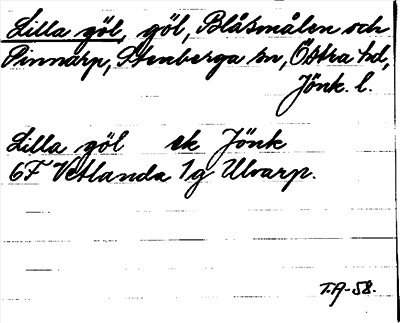 Lilla göl, göl, Blåsmålen och
Pinnarp, Stenberga sn, Östra hd,
Jönk. l.
Lilla göl ek Jönk
6F Vetlanda 1g Ulvarp.
T.A-58.